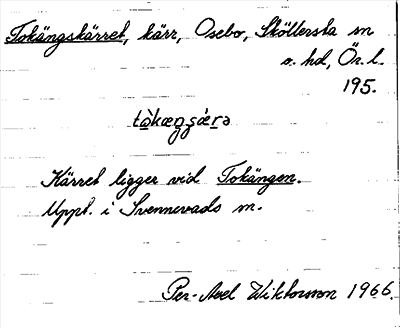 Tokängskärret, kärr, Osebo, Sköllersta sn
o. hd, Ör. l.
195.
tò̱kæŋ̱sǽṟə
Kärret ligger vid Tokängen.
Uppt. i Svennevads sn.
Per-Axel Wiktorsson 1966.